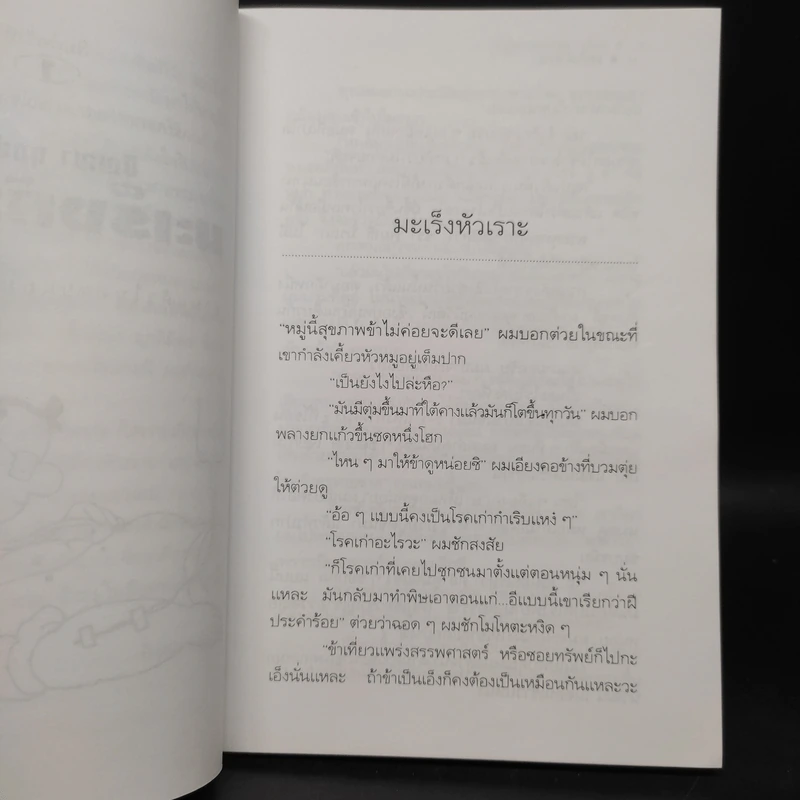 มะเร็งหัวเราะ
“หมู่นี้สุขภาพข้าไม่ค่อยจะดีเลย” ผมบอกต่วยในขณะที่
เขากำลังเคี้ยวหัวหมูอยู่เต็มปาก
“เป็นยังไงไปล่ะหือ?”
“มันมีตุ่มขึ้นมาที่ใต้คางแล้วมันก็โตขึ้นทุกวัน” ผมบอก
พลางยกแก้วขึ้นซดหนึ่งโฮก
“ไหน ๆ มาให้ข้าดูหน่อยซิ” ผมเอียงคอข้างที่บวมตุ่ย
ให้ต่วยดู
“อ้อ ๆ แบบนี้คงเป็นโรคเก่ากำเริบแหง๋ ๆ”
“โรคเก่าอะไรวะ” ผมชักสงสัย
“ก็โรคเก่าที่เคยไปซุกซนมาตั้งแต่ตอนหนุ่ม ๆ นั่น
แหละ มันกลับมาทำพิษเอาตอนแก่...อีแบบนี้เขาเรียกว่าฝี
ประคำร้อย” ต่วยว่าฉอด ๆ ผมชักโมโหตะหงิด ๆ
“ข้าเที่ยวแพร่งสรรพศาสตร์ หรือซอยทรัพย์ก็ไปกะ
เอ็งนั่นแหละ ถ้าข้าเป็นเอ็งก็คงต้องเป็นเหมือนกันแหละวะ